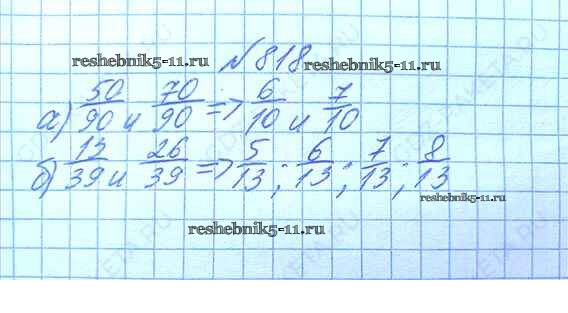 reshebnik5-11.ru №818 reshebnik5-11.ru
а) 50/90 и 70/90 => 6/10 и 7/10
б) 13/39 и 26/39 => 5/13; 6/13; 7/13; 8/13
reshebnik5-11.ru
reshebnik5-11.ru